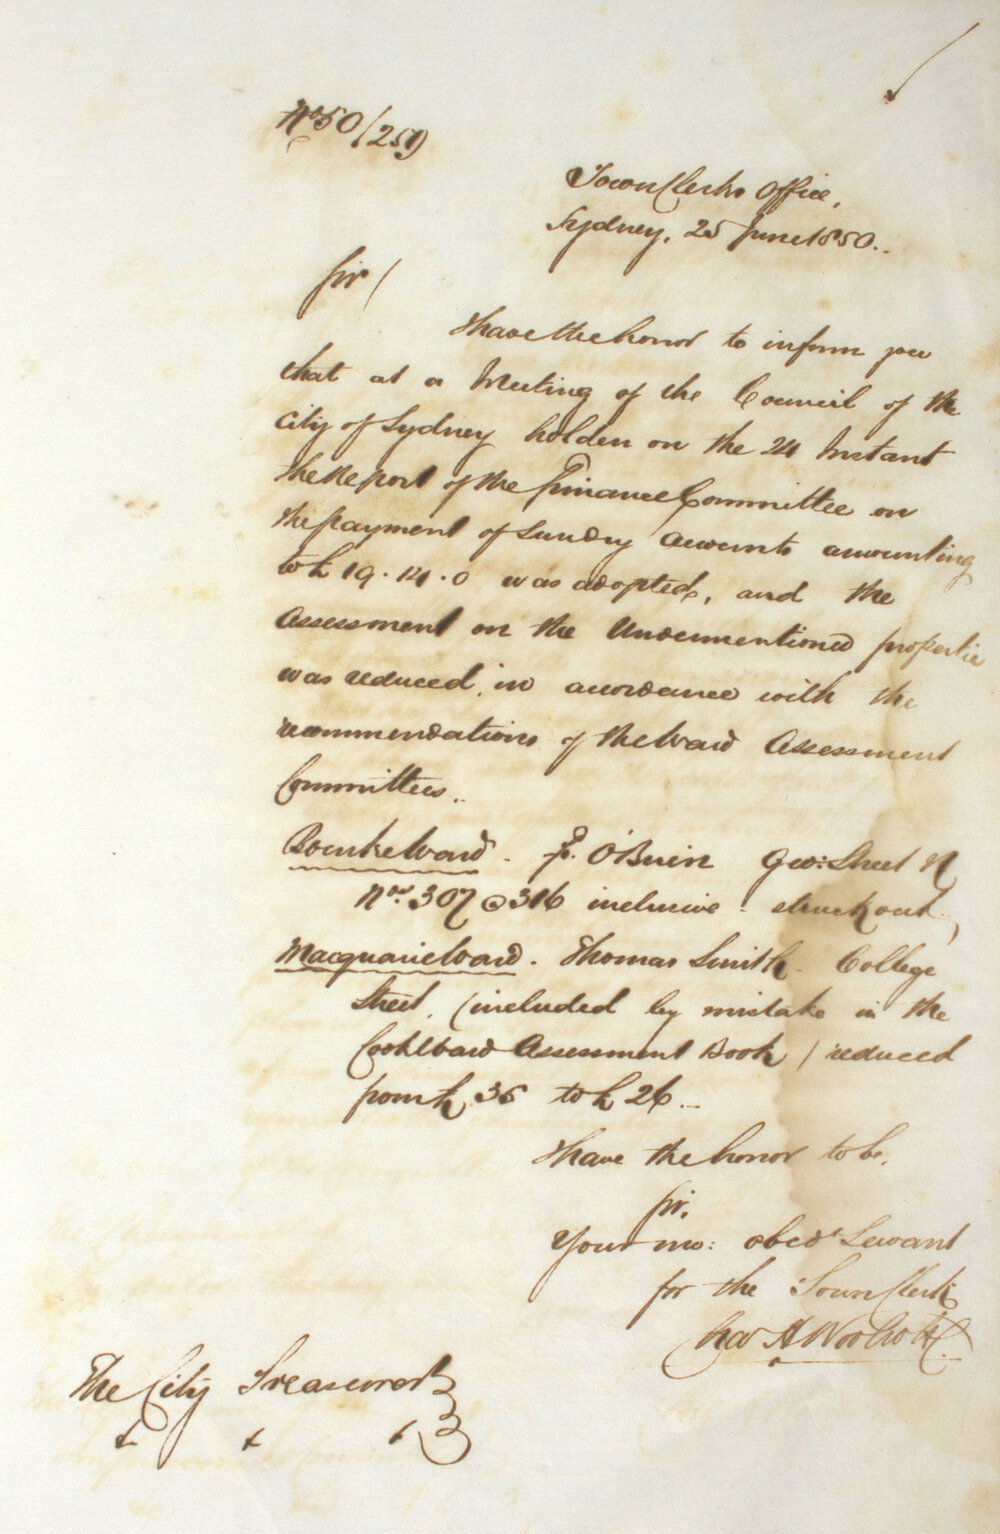 No 50/259
Town Clerks Office,
Sydney, 25 June 1850.
Sir /
I have the honor to inform you
that at a Meeting of the Council of the
City of Sydney holden on the 24 Instant
the Report of the Finance Committee on
the payment of Sundry accounts amounting
to £ 19.14.0 was adopted, and the
Assessment on the Undermentioned propertie
was reduced, in accordance with the
recommendations of the Ward Assessment
Committees.
Bourke Ward. F. O'Brien Geo: Street N
Nos. 307 @ 316 inclusive: struck out.
Macquarie Ward. Thomas Smith College
Street, (included by mistake in the
Cook Ward Assessment Book) reduced
from £ 35 to £ 26
I have the honor to be,
Sir,
Your mo: obedt Servant
for the Town Clerk
Chas H Woolcott
The City Treasurer